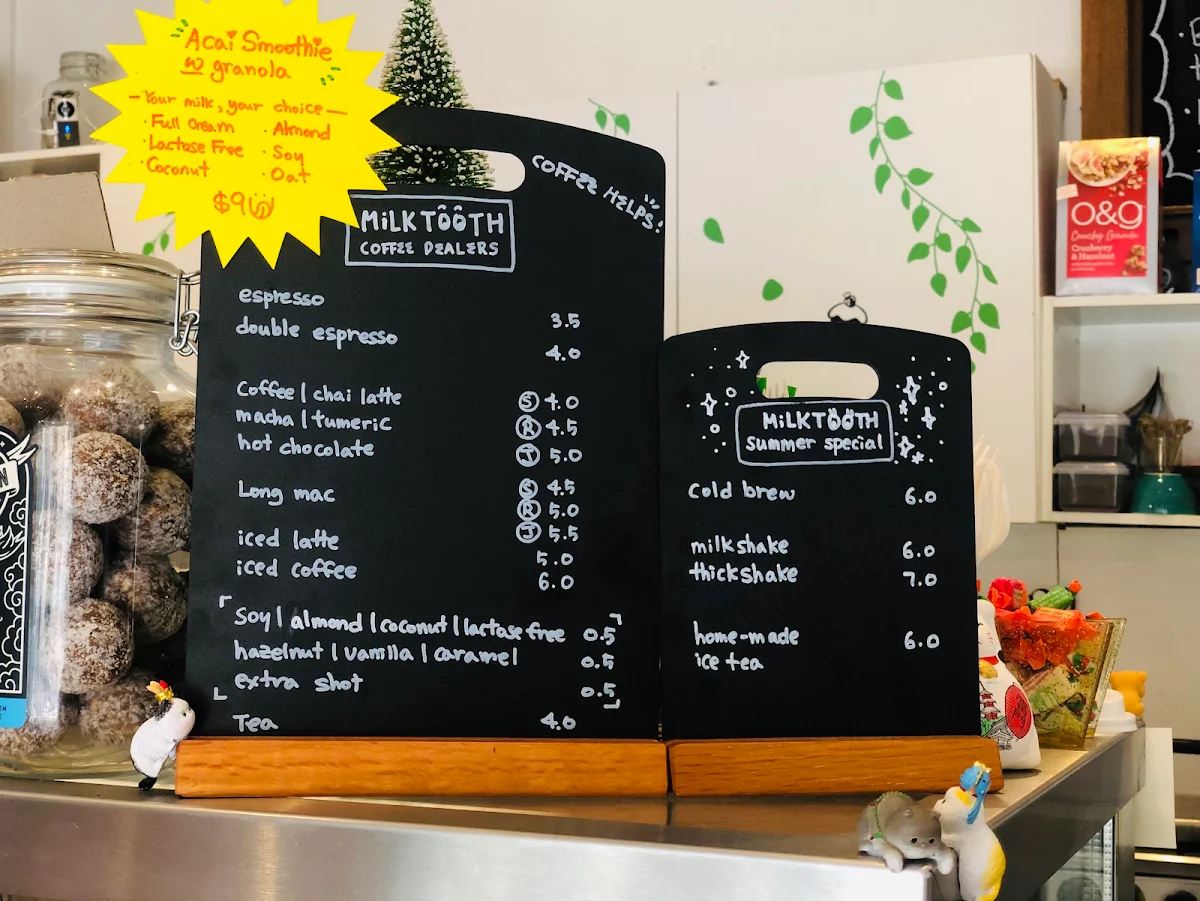 Acai Smoothie
w granola
— Your milk, your choice —
· Full Cream · Almond
· Lactose Free · Soy
· Coconut · Oat
$9
COFFEE HELPS!
MiLKTÖÖTH
COFFEE DEALERS
espresso 3.5
double espresso 4.0
Coffee | chai latte Ⓢ 4.0
macha | tumeric Ⓡ 4.5
hot chocolate Ⓙ 5.0
Long mac Ⓢ 4.5
Ⓡ 5.0
Ⓙ 5.5
iced latte 5.0
iced coffee 6.0
Soy | almond | coconut | lactose free 0.5
hazelnut | vanilla | caramel 0.5
extra shot 0.5
Tea 4.0
MiLKTÖÖTH
summer special
cold brew 6.0
milkshake 6.0
thickshake 7.0
home-made 6.0
ice tea
o&g
Crunchy Granola
Cranberry
& Hazelnut